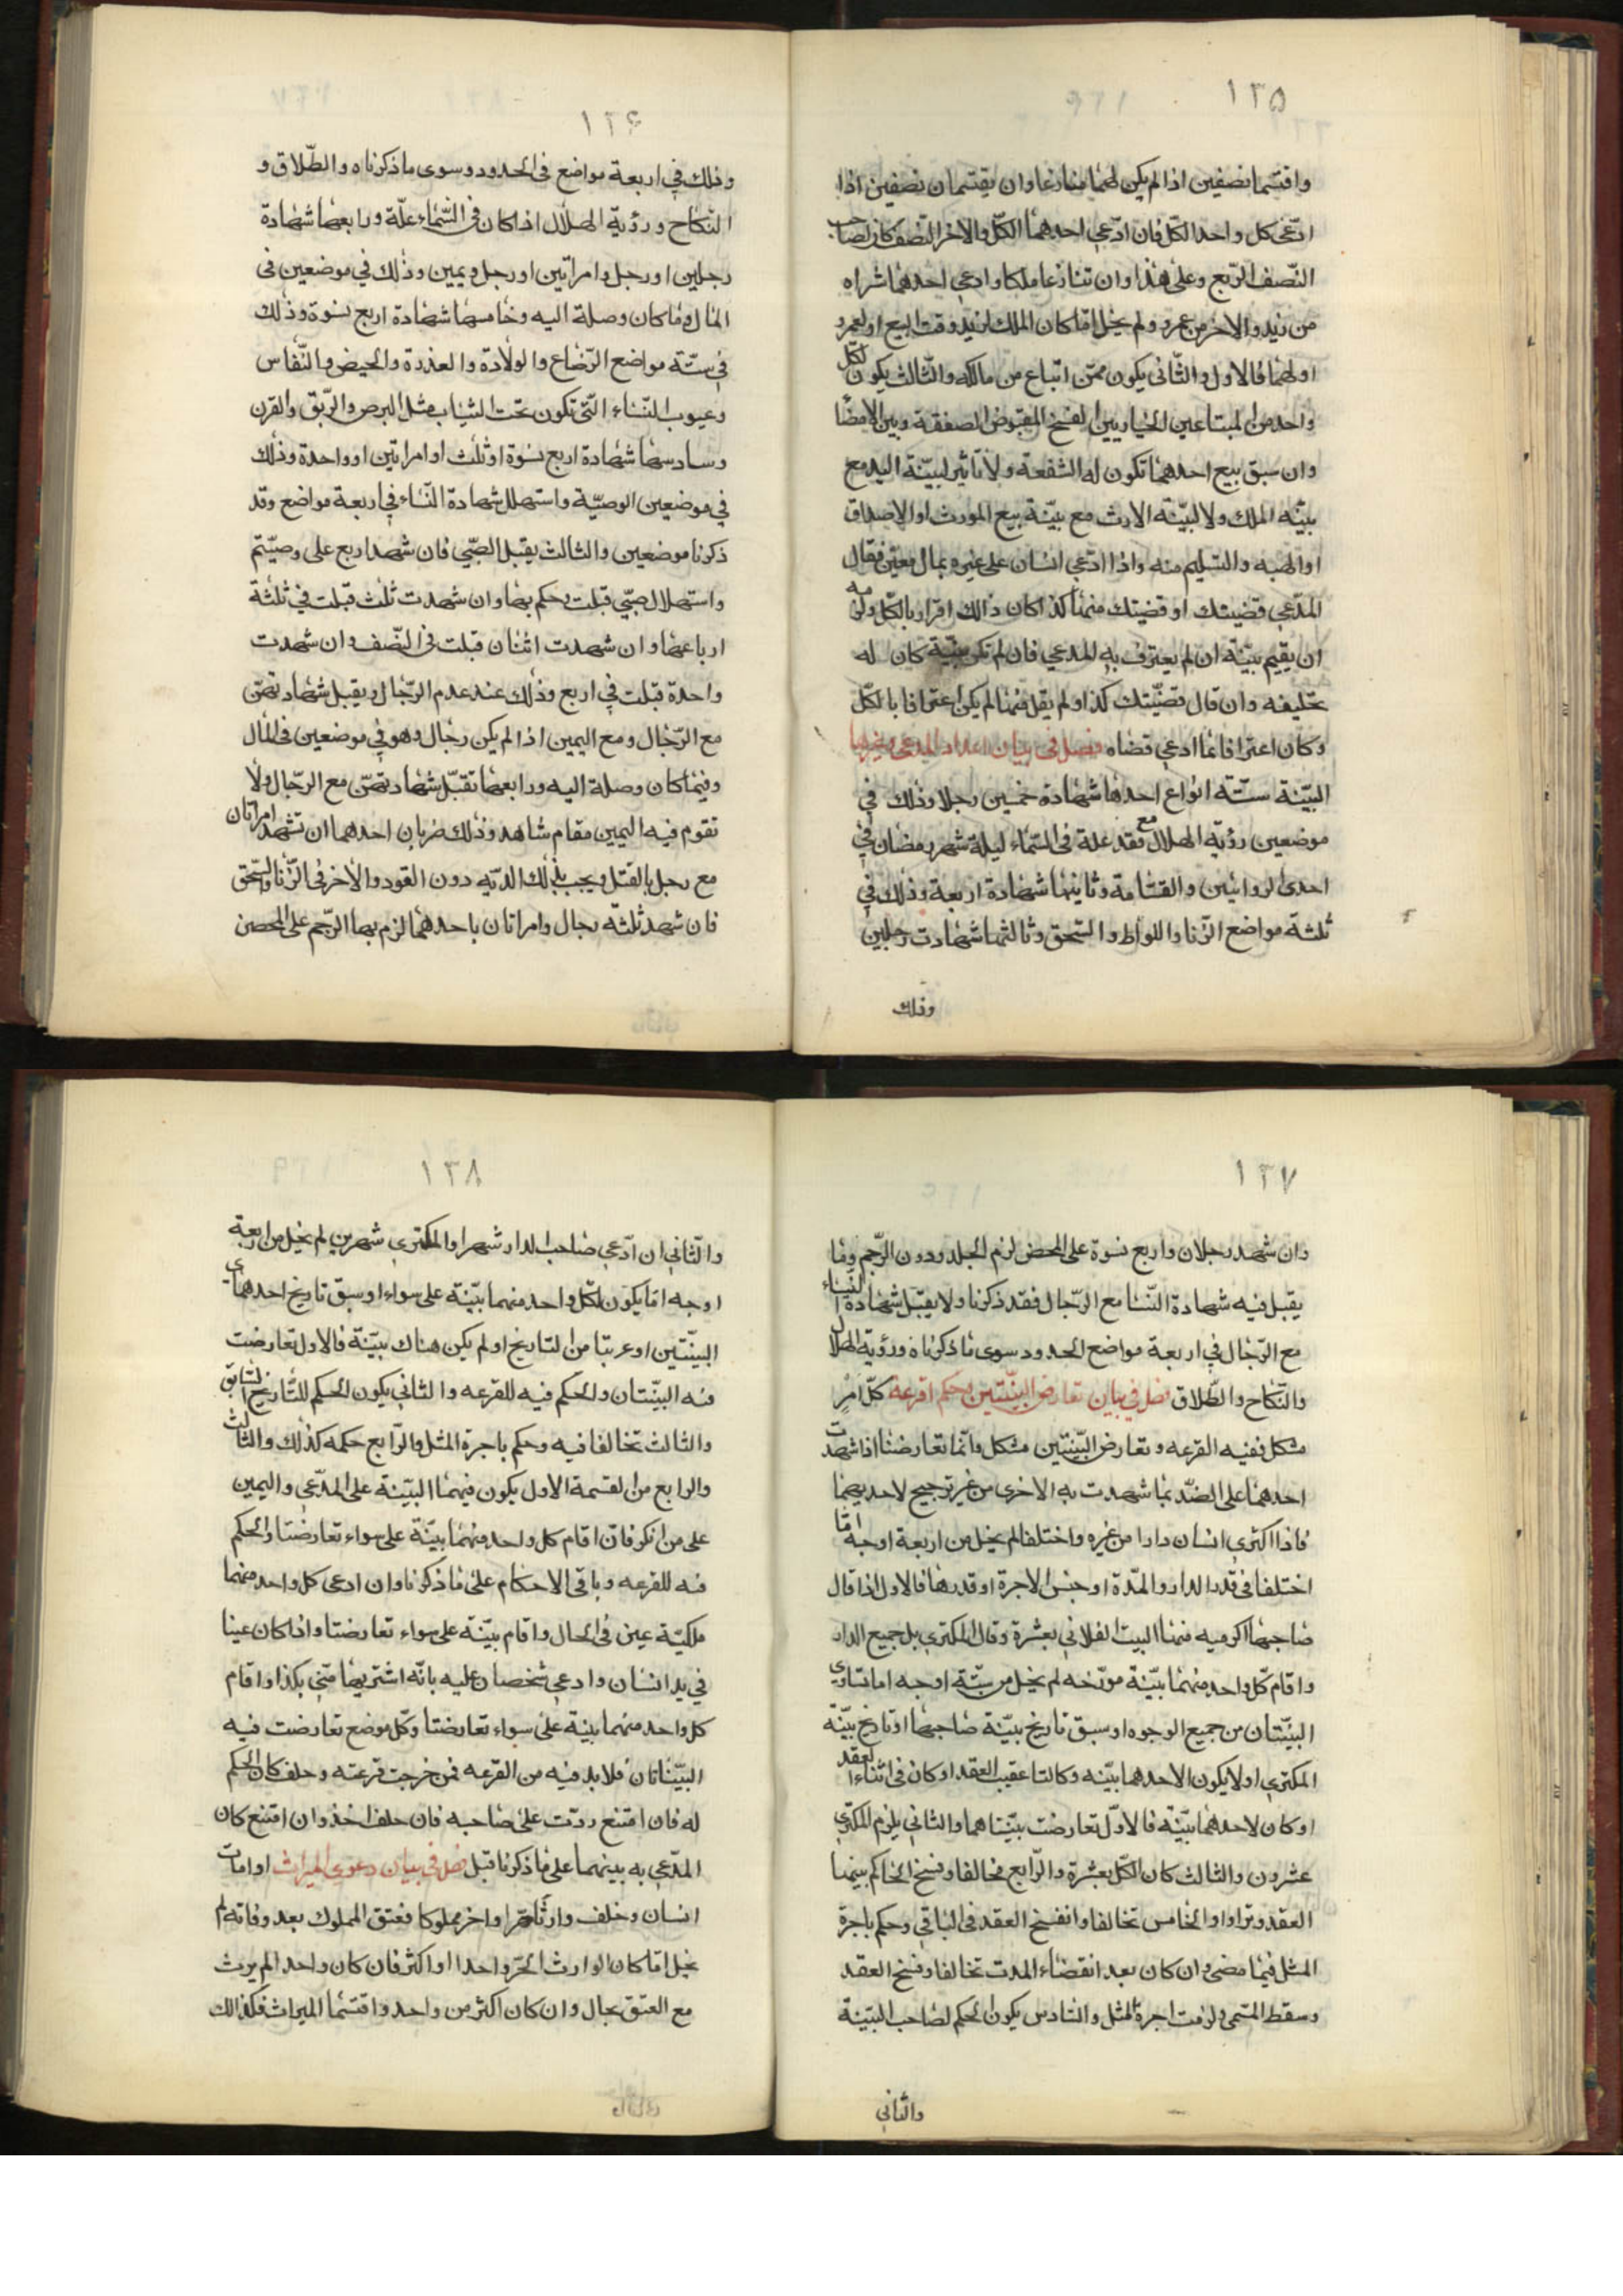 ١٣۵
واقتسما نصفين اذا لم يكن لهما منازعا وان يقتسمان نصفين اذا
ادّعى كل واحد الكلّ فان ادّعى احدهما الكلّ والاخر النّصف كان لصاحب
النّصف الرّبع وعلى هذا وان تنازعا ملكا وادعى احدهما شراه
من زيد والاخر من عمرو ولم يخل امّا كان الملك لزيد وقت البيع او لعمرو
او لهما فالاول والثّانى يكون ممّن ابتاع من مالكه والثّالث يكون لكلّ
واحد من المبتاعين الخيار بين الفسخ المقبوض الصفقة وبين الامضا
وان سبق بيع احدهما تكون له الشفعة ولا تاثير لبيّنة اليد مع
بيّنه الملك ولا لبيّنة الارث مع بيّنة بيع المورث او الاصداق
او الهبه والتسليم منه واذا ادّعى انسان على غيره بمال معيّن فقال
المدّعى قضيتك او قضيتك منهنا كذا كان ذالك اقرار بالكلّ ولزمه
ان يقيم بيّنة ان لم يعترف به المدعى فان لم تكن بيّنة كان له
تحليفه وان قال قضيّتك كذا ولم يقل منهنا لم يكن اعترافا بالكلّ
وكان اعترافا بما ادعى قضاه فصل فى بيان اعداد المدعى وغيرها
البيّنة ستّة انواع احدها شهادة خمسين رجلا وذلك فى
موضعين رؤية الهلال مع فقد علة فى السّماء ليلة شهر رمضان فى
احدى الروائيين والقسامة وثانيها شهادة اربعة وذلك فى
ثلثة مواضع الزّنا واللواط والسّحق وثالثها شهادت رجلين
وذلك
١٣۶
وذلك فى اربعة مواضع فى الحدود وسوى ما ذكرناه والطّلاق و
النّكاح ورؤية الهلال اذا كان فى السّماء علّة ورابعها شهادة
رجلين او رجل وامراتين او رجل ويمين وذلك فى موضعين فى
المال وما كان وصلة اليه وخامسها شهادة اربع نسوة وذلك
فى ستّة مواضع الرّضاع والولادة والعذرة والحيض والنّفاس
وعيوب النّساء الّتى تكون تحت الثياب مثل البرص والرّتق والقرن
وسادسها شهادة اربع نسوة او ثلث او امراتين او واحدة وذلك
فى موضعين الوصيّة واستهلال شهادة النّساء فى اربعة مواضع وقد
ذكرنا موضعين والثالث يقبل الصّبى فان شهد اربع على وصيّتم
واستهلال صبّى قبلت وحكم بها وان شهدت ثلث قبلت فى ثلثة
ارباعها وان شهدت اثنان قبلت فى النّصف وان شهدت
واحدة قبلت فى اربع وذلك عند عدم الرّجال ويقبل شهادتهنّ
مع الرّجال ومع اليمين اذا لم يكن رجال وهو فى موضعين فى المال
وفيما كان وصلة اليه ورابعها تقبل شهادتهنّ مع الرجال ولا
تقوم فيه اليمين مقام شاهد وذلك ضربان احدهما ان تشهد امراتان
مع رجل بالقتل ويجب بذلك الديه دون القود والأخر فى الزّنا والسّحق
فان شهد ثلثة رجال وامراتان باحدهما لزم بها الرّجم على المحصن
١٣٧
وان شهد رجلان واربع نسوة على المحصن لزم الجلد ودون الرّجم وما
يقبل فيه شهادة النّسا مع الرّجال فقد ذكرنا ولا يقبل شهادة النّساء
مع الرّجال فى اربعة مواضع الحدود سوى ما ذكرناه ورؤية الهلال
والنّكاح والطّلاق فصل فى بيان تعارض البيّنتين وحكم اقرعة كلّ امرٍ
مشكل ففيه القرعه وتعارض البيّنتين مشكل وانّما تعارضتا اذا شهدت
احدهما على الضدّ بما شهدت به الاخرى من غير ترجيح لاحديهما
فاذا اكترى انسان دارا من غيره واختلفا لم يخل من اربعة اوجه امّا
اختلفا فى قدر الدار والمدّة او جنس الاجرة او قدرها فالاول اذا قال
صاحبها اكرميه منهنا البيت الفلانى بعشرة وقال المكترى بل جميع الدار
واقام كلّ واحد منهما بيّنة مورّخه لم يخل من ستّة اوجه اما تساوى
البيّنتان من جميع الوجوه او سبق تاريخ بيّنة صاحبها او تاريخ بيّنة
المكترى او لا يكون الاحدهما بيّنه وكالتا عقيب العقد او كان فى اثناء العقد
او كان لاحدهما بيّنة فالاوّل تعارضت بيّنتاهما والثانى يلزم المكترى
عشرون والثالث كان الكلّ بعشرة والرّابع تحالفا وفسخ الحاكم بينهما
العقد وترادا والخامس تخالفا وانفسخ العقد فى الباقى وحكم باجرة
المثل فيما مضى وان كان بعد انقضاء المدت تخالفا وفسخ العقد
وسقط المسمى ولزمت اجرة المثل والسّادس يكون الحكم لصاحب البيّنة
والثانى
١٣٨
والثّانى ان ادّعى صاحب الدار شهرا والمكترى شهرين لم يخل من اربعة
اوجه امّا يكون لكلّ واحد منهما بيّنة على سواء او سبق تاريخ احدهماى
البيّنتين او عريتا من التاريخ او لم يكن هناك بيّنة فالاول تعارضت
فيه البيّنتان والحكم فيه للقرعه والثانى يكون الحكم للتّاريخ السّابق
والثالث تخالفا فيه وحكم باجرة المثل والرّابع حكمه كذلك والثالث
والرابع من القسمة الاول يكون فيهما البيّنة على المدّعى واليمين
على من انكر فان اقام كل واحد منهما بيّنة على سواء تعارضتا والحكم
فيه للقرعه وباقى الاحكام على ما ذكرنا وان ادعى كل واحد منهما
ملكيّة عين فى الحال واقام بيّنة على سواء تعارضتا واذا كان عينا
فى يد انسان وادعى شخصان عليه بانّه اشتريها منّى بكذا واقام
كل واحد منهما بينة على سواء تعارضتا وكلّ موضع تعارضت فيه
البيّناتان فلا بد فيه من القرعه فمن خرجت قرعته وحلف كان الحكم
له فان امتنع ردّت على صاحبه فان حلف اخذ وان امتنع كان
المدّعى به بينهما على ما ذكرنا قبل فصل فى بيان دعوى الميراث اوامات
انسان وخلف وارثا حرا واخر مملوكا فعتق المملوك بعد وفاته لم
يخل امّا كان الوارث الحرّ واحدا او اكثر فان كان واحد الم يرث
مع العتق بحال وان كان اكثر من واحد واقتسما الميراث فكذالك